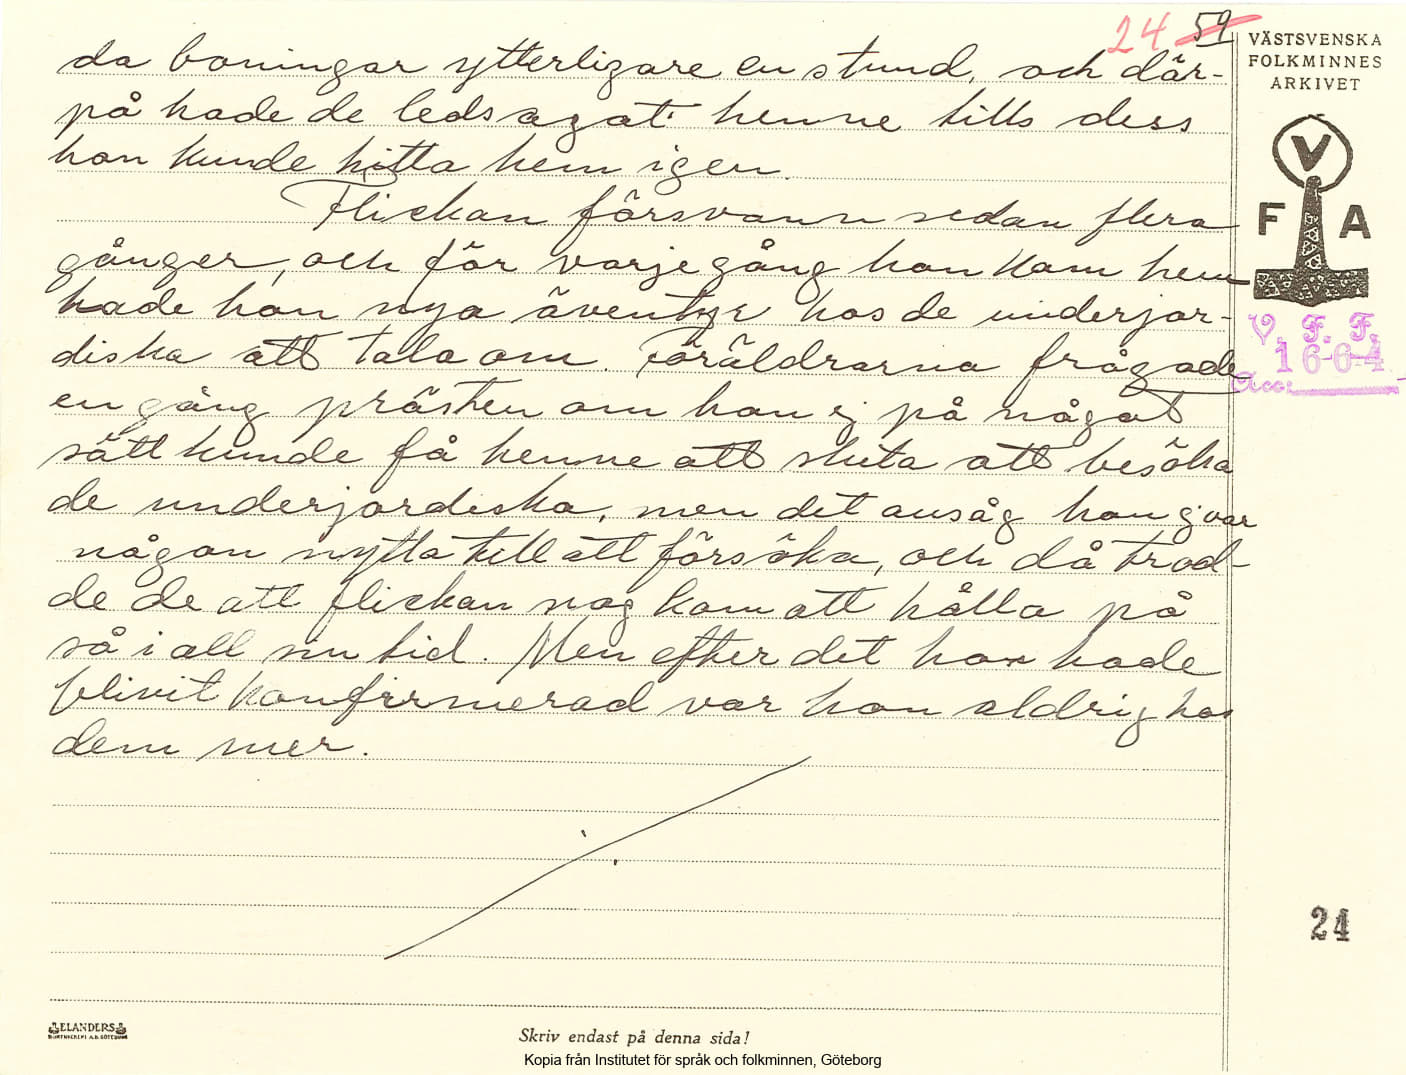 24 59
VÄSTSVENSKA
FOLKMINNES
ARKIVET
V
F A
V. F. F.
1664
Acc:
da boningar ytterligare en stund, och där-
på hade de ledsagat henne tills dess
hon kunde hitta hem igen.
Flickan försvann sedan flera
gånger, och för varje gång hon kom hem
hade hon nya äventyr hos de underjor-
diska att tala om. Föräldrarna frågade
en gång prästen om han ej på något
sätt kunde få henne att sluta att besöka
de underjordiska, men det ansåg han ej var
någon nytta till att försöka, och då trod-
de de att flickan nog kom att hålla på
så i all sin tid. Men efter det hon hade
blivit konfirmerad var hon aldrig hos
dem mer.
24
ELANDERS
Skriv endast på denna sida!
Kopia från Institutet för språk och folkminnen, Göteborg